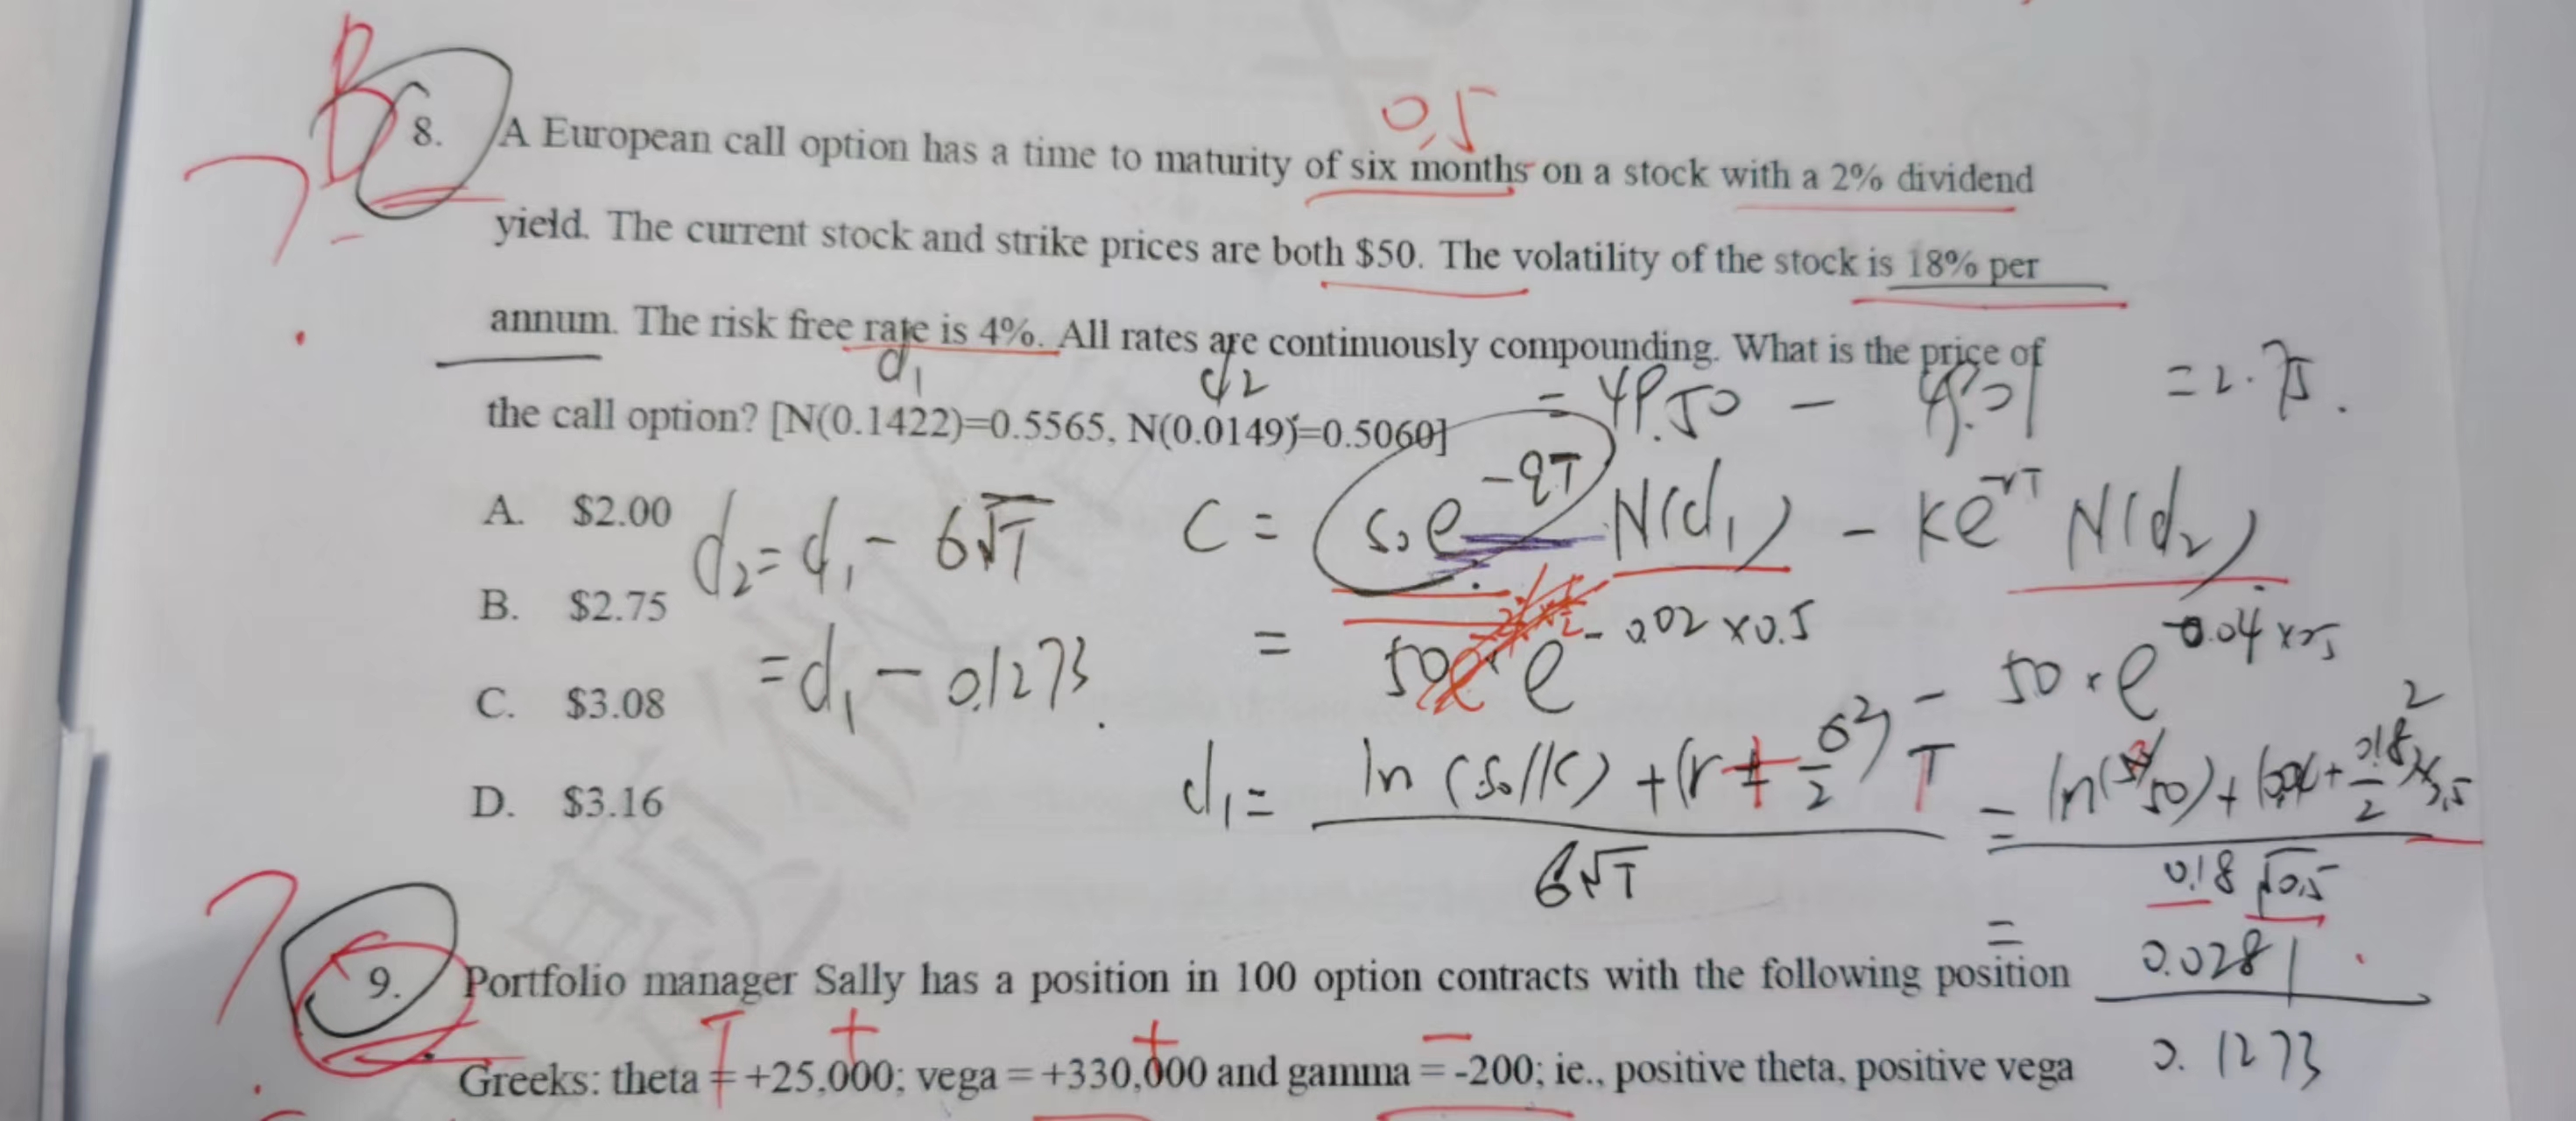 B
0.5
8. A European call option has a time to maturity of six months on a stock with a 2% dividend
yield. The current stock and strike prices are both $50. The volatility of the stock is 18% per
annum. The risk free rate is 4%. All rates are continuously compounding. What is the price of
d₁ d₂ = 49.50 - = 2.75.
the call option? [N(0.1422)=0.5565, N(0.0149)=0.5060]
A. $2.00
d₂ = d₁ - σ√T
C = S₀e^-qT N(d₁) - Ke^-rT N(d₂)
B. $2.75
= 50 e^-0.02×0.5 - 50 × e^-0.04×0.5
= d₁ - 0.1273.
C. $3.08
d₁ = ln(S₀/K) + (r + σ²/2) T
= ln(50/50) + ( + 0.18²/2) × 0.5
D. $3.16
σ√T
0.18 √0.5
= 0.0281
0.1273
9. Portfolio manager Sally has a position in 100 option contracts with the following position
T + + -
Greeks: theta = +25,000; vega = +330,000 and gamma = -200; ie., positive theta, positive vega